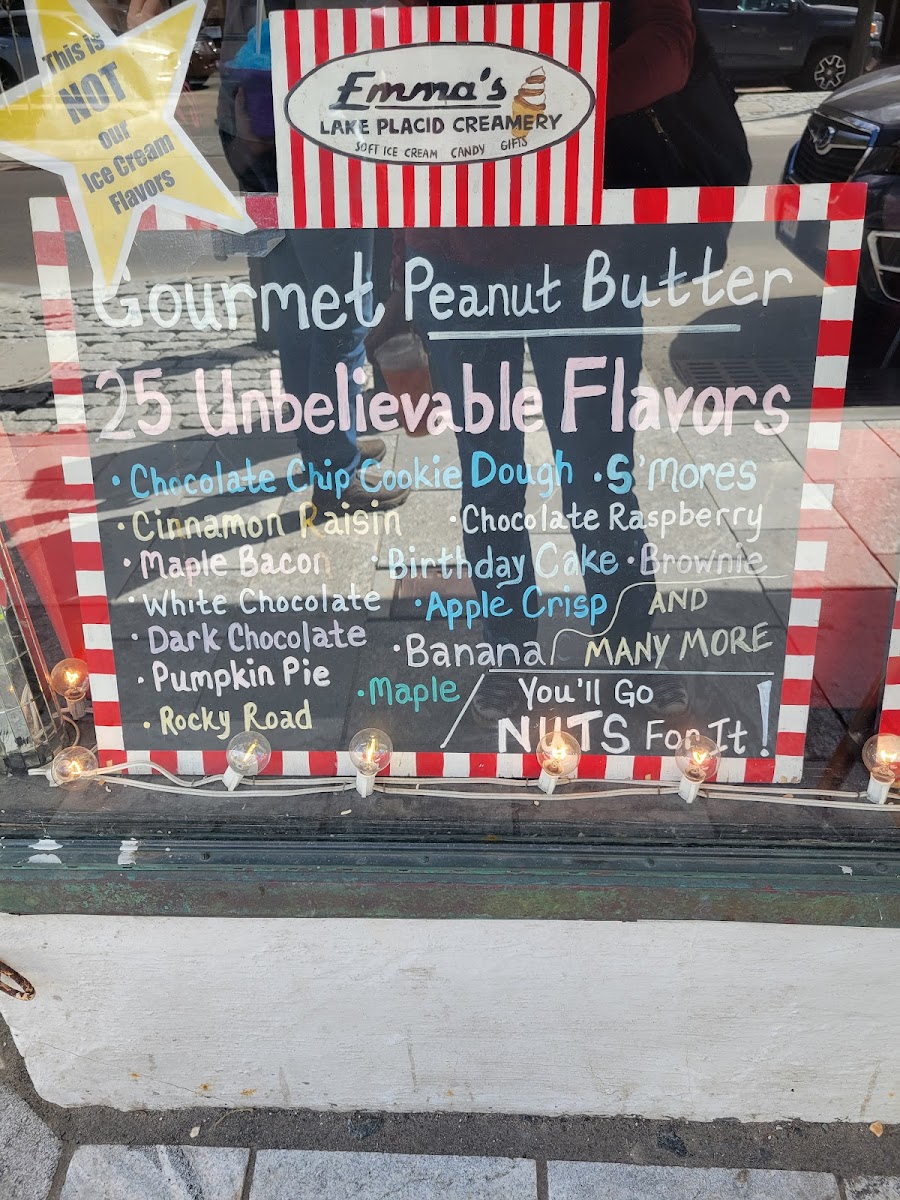 This is
NOT
our
Ice Cream
Flavors
Emma's
LAKE PLACID CREAMERY
SOFT ICE CREAM CANDY GIFTS
Gourmet Peanut Butter
25 Unbelievable Flavors
• Chocolate Chip Cookie Dough • S'mores
• Cinnamon Raisin • Chocolate Raspberry
• Maple Bacon • Birthday Cake • Brownie
• White Chocolate • Apple Crisp AND
• Dark Chocolate • Banana MANY MORE
• Pumpkin Pie • Maple You'll Go
• Rocky Road NUTS For It!